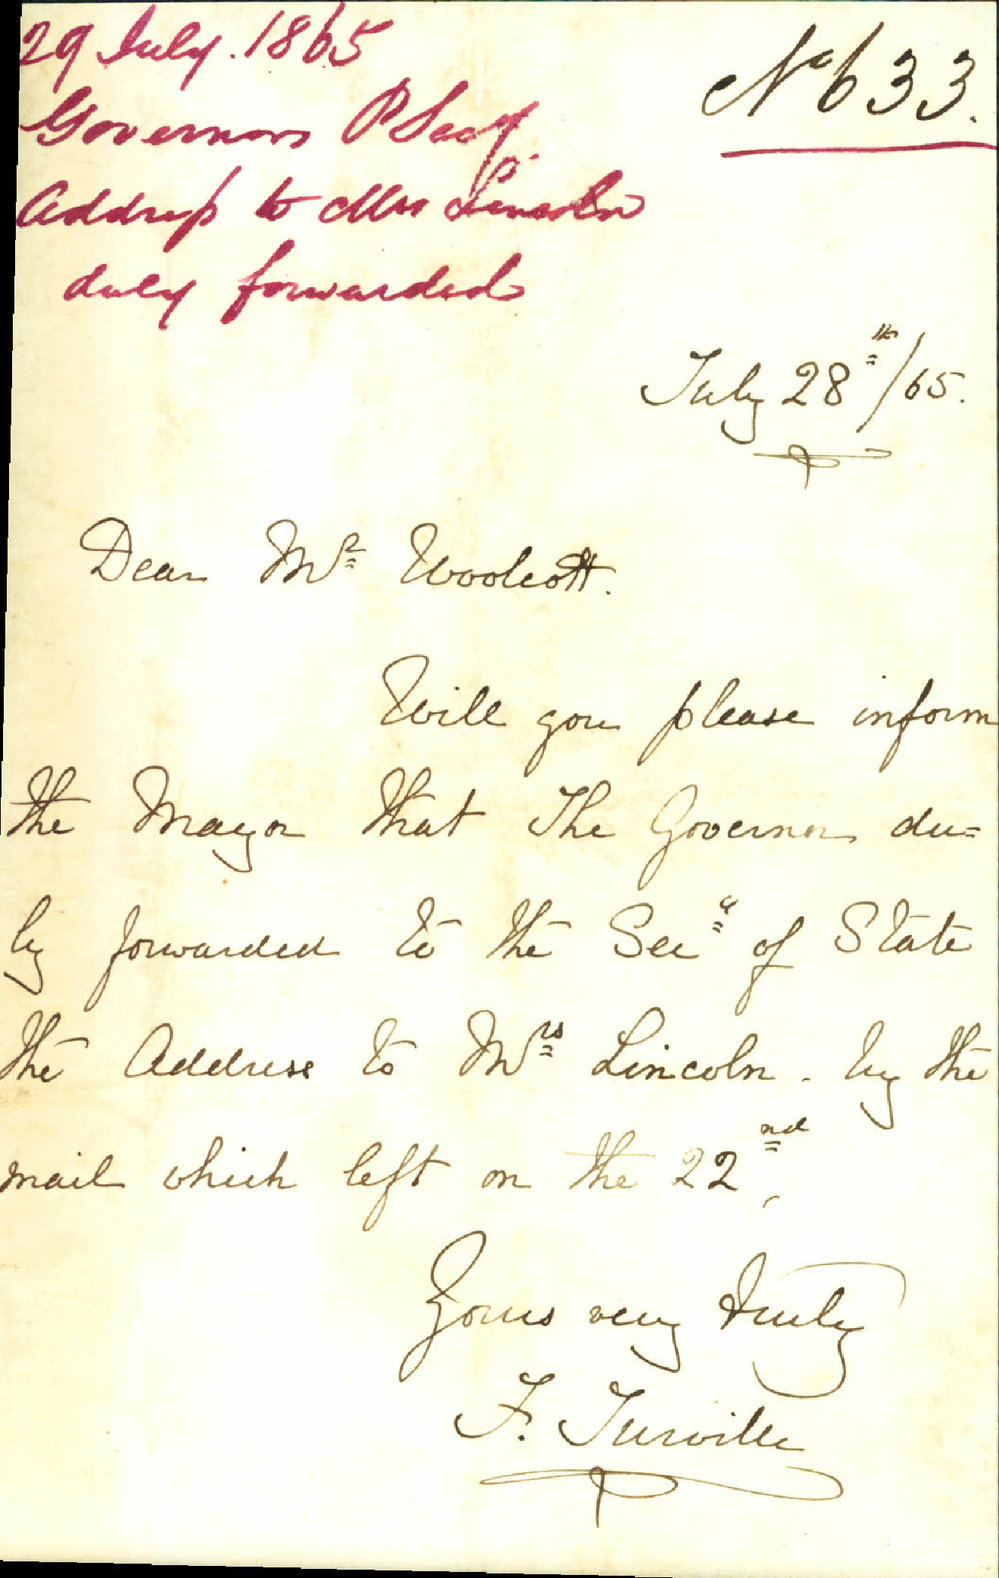 29 July. 1865
Governors P Secy.
Address to Mrs Lincoln
duly forwarded
No 633.
July 28th/65.
Dear Mr Woolcott.
Will you please inform
the Mayor that The Governor du=
ly forwarded to the Secy of State
the Address to Mrs Lincoln. by the
mail which left on the 22nd,
Yours very truly
F. Turville